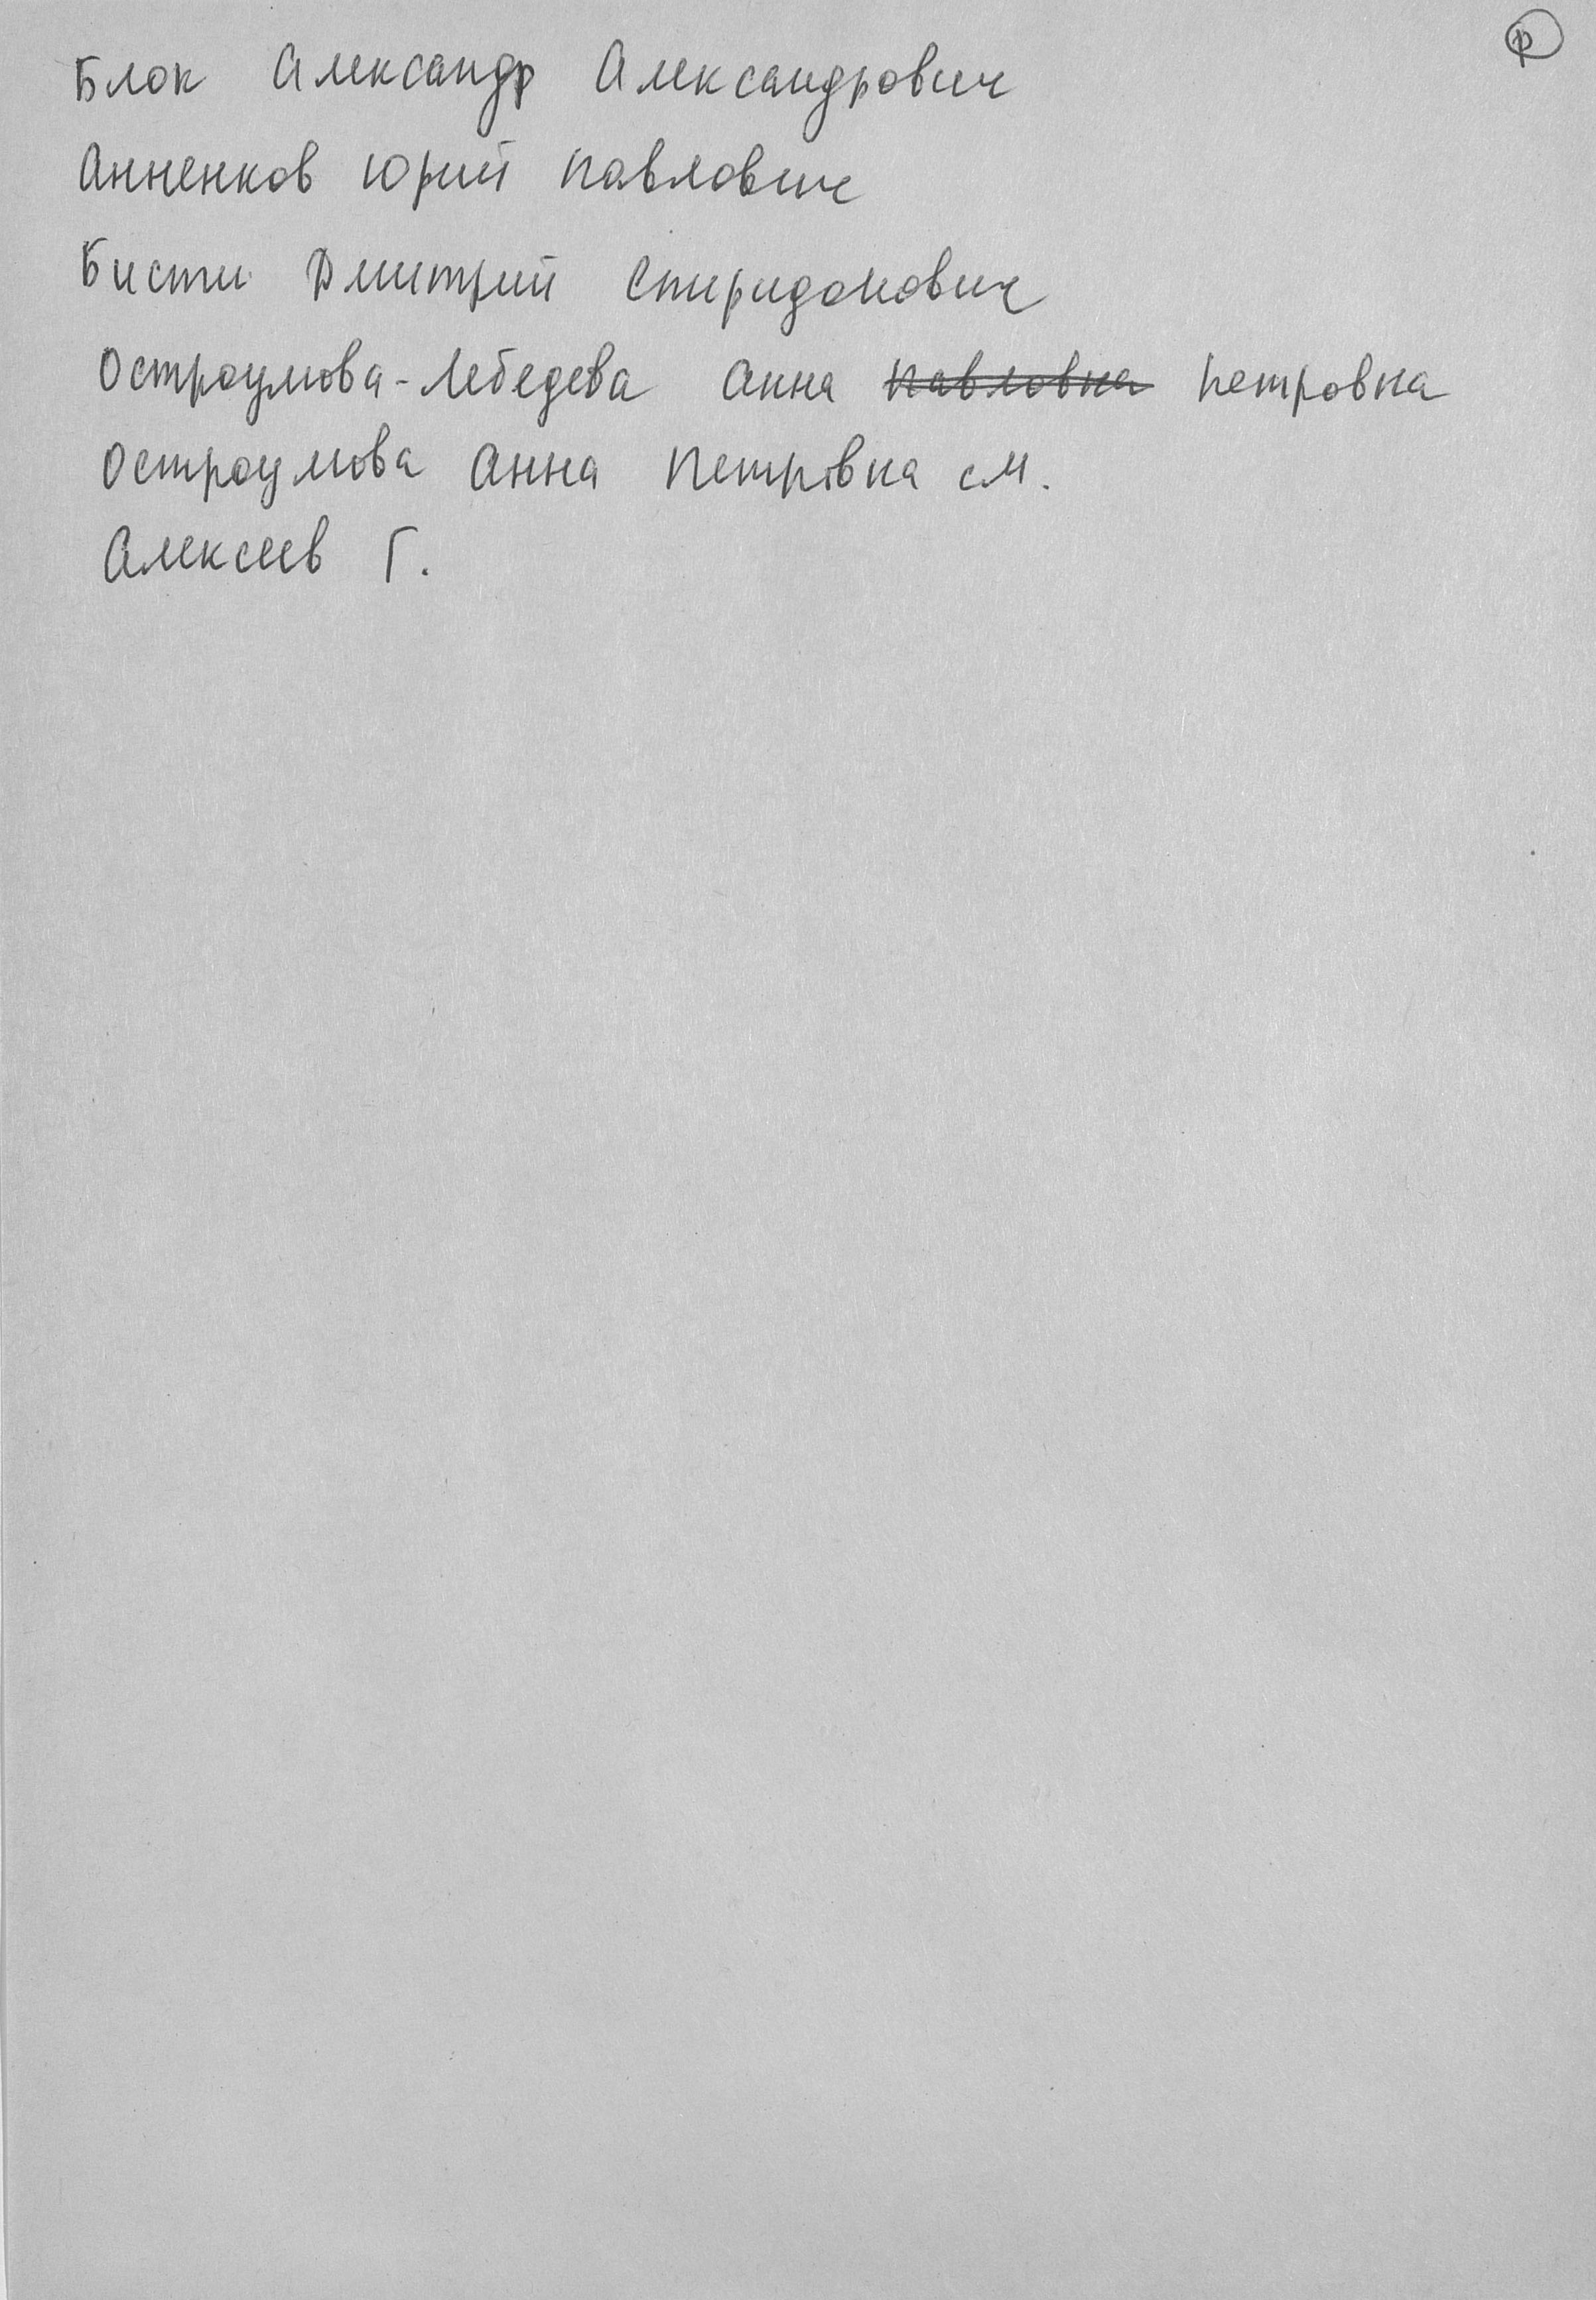 р
Блок Александр Александрович
Анненков Юрий Павлович
Бисти Дмитрий Спиридонович
Остроумова-Лебедева Анна Павловна Петровна
Остроумова Анна Петровна см.
Алексеев Г.